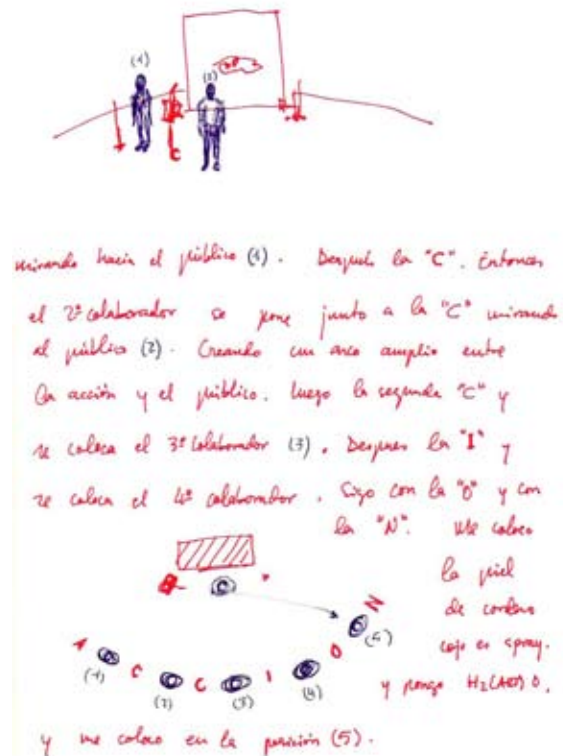 (1)
(2)
C
mirando hacia el público (1). Después la "C". Entonces
el 2º colaborador se pone junto a la "C" mirando
al público (2). Creando un arco amplio entre
la acción y el público. Luego la segunda "C" y
se coloca el 3º colaborador (3). Despues la "I" y
se coloca el 4º colaborador. Sigo con la "O" y con
la "N". Me coloco
la piel
de cordero
cojo es spray.
y pongo H2 0,
A (1) C (2) C (3) I (4) O (5) N
y me coloco en la posición (5).